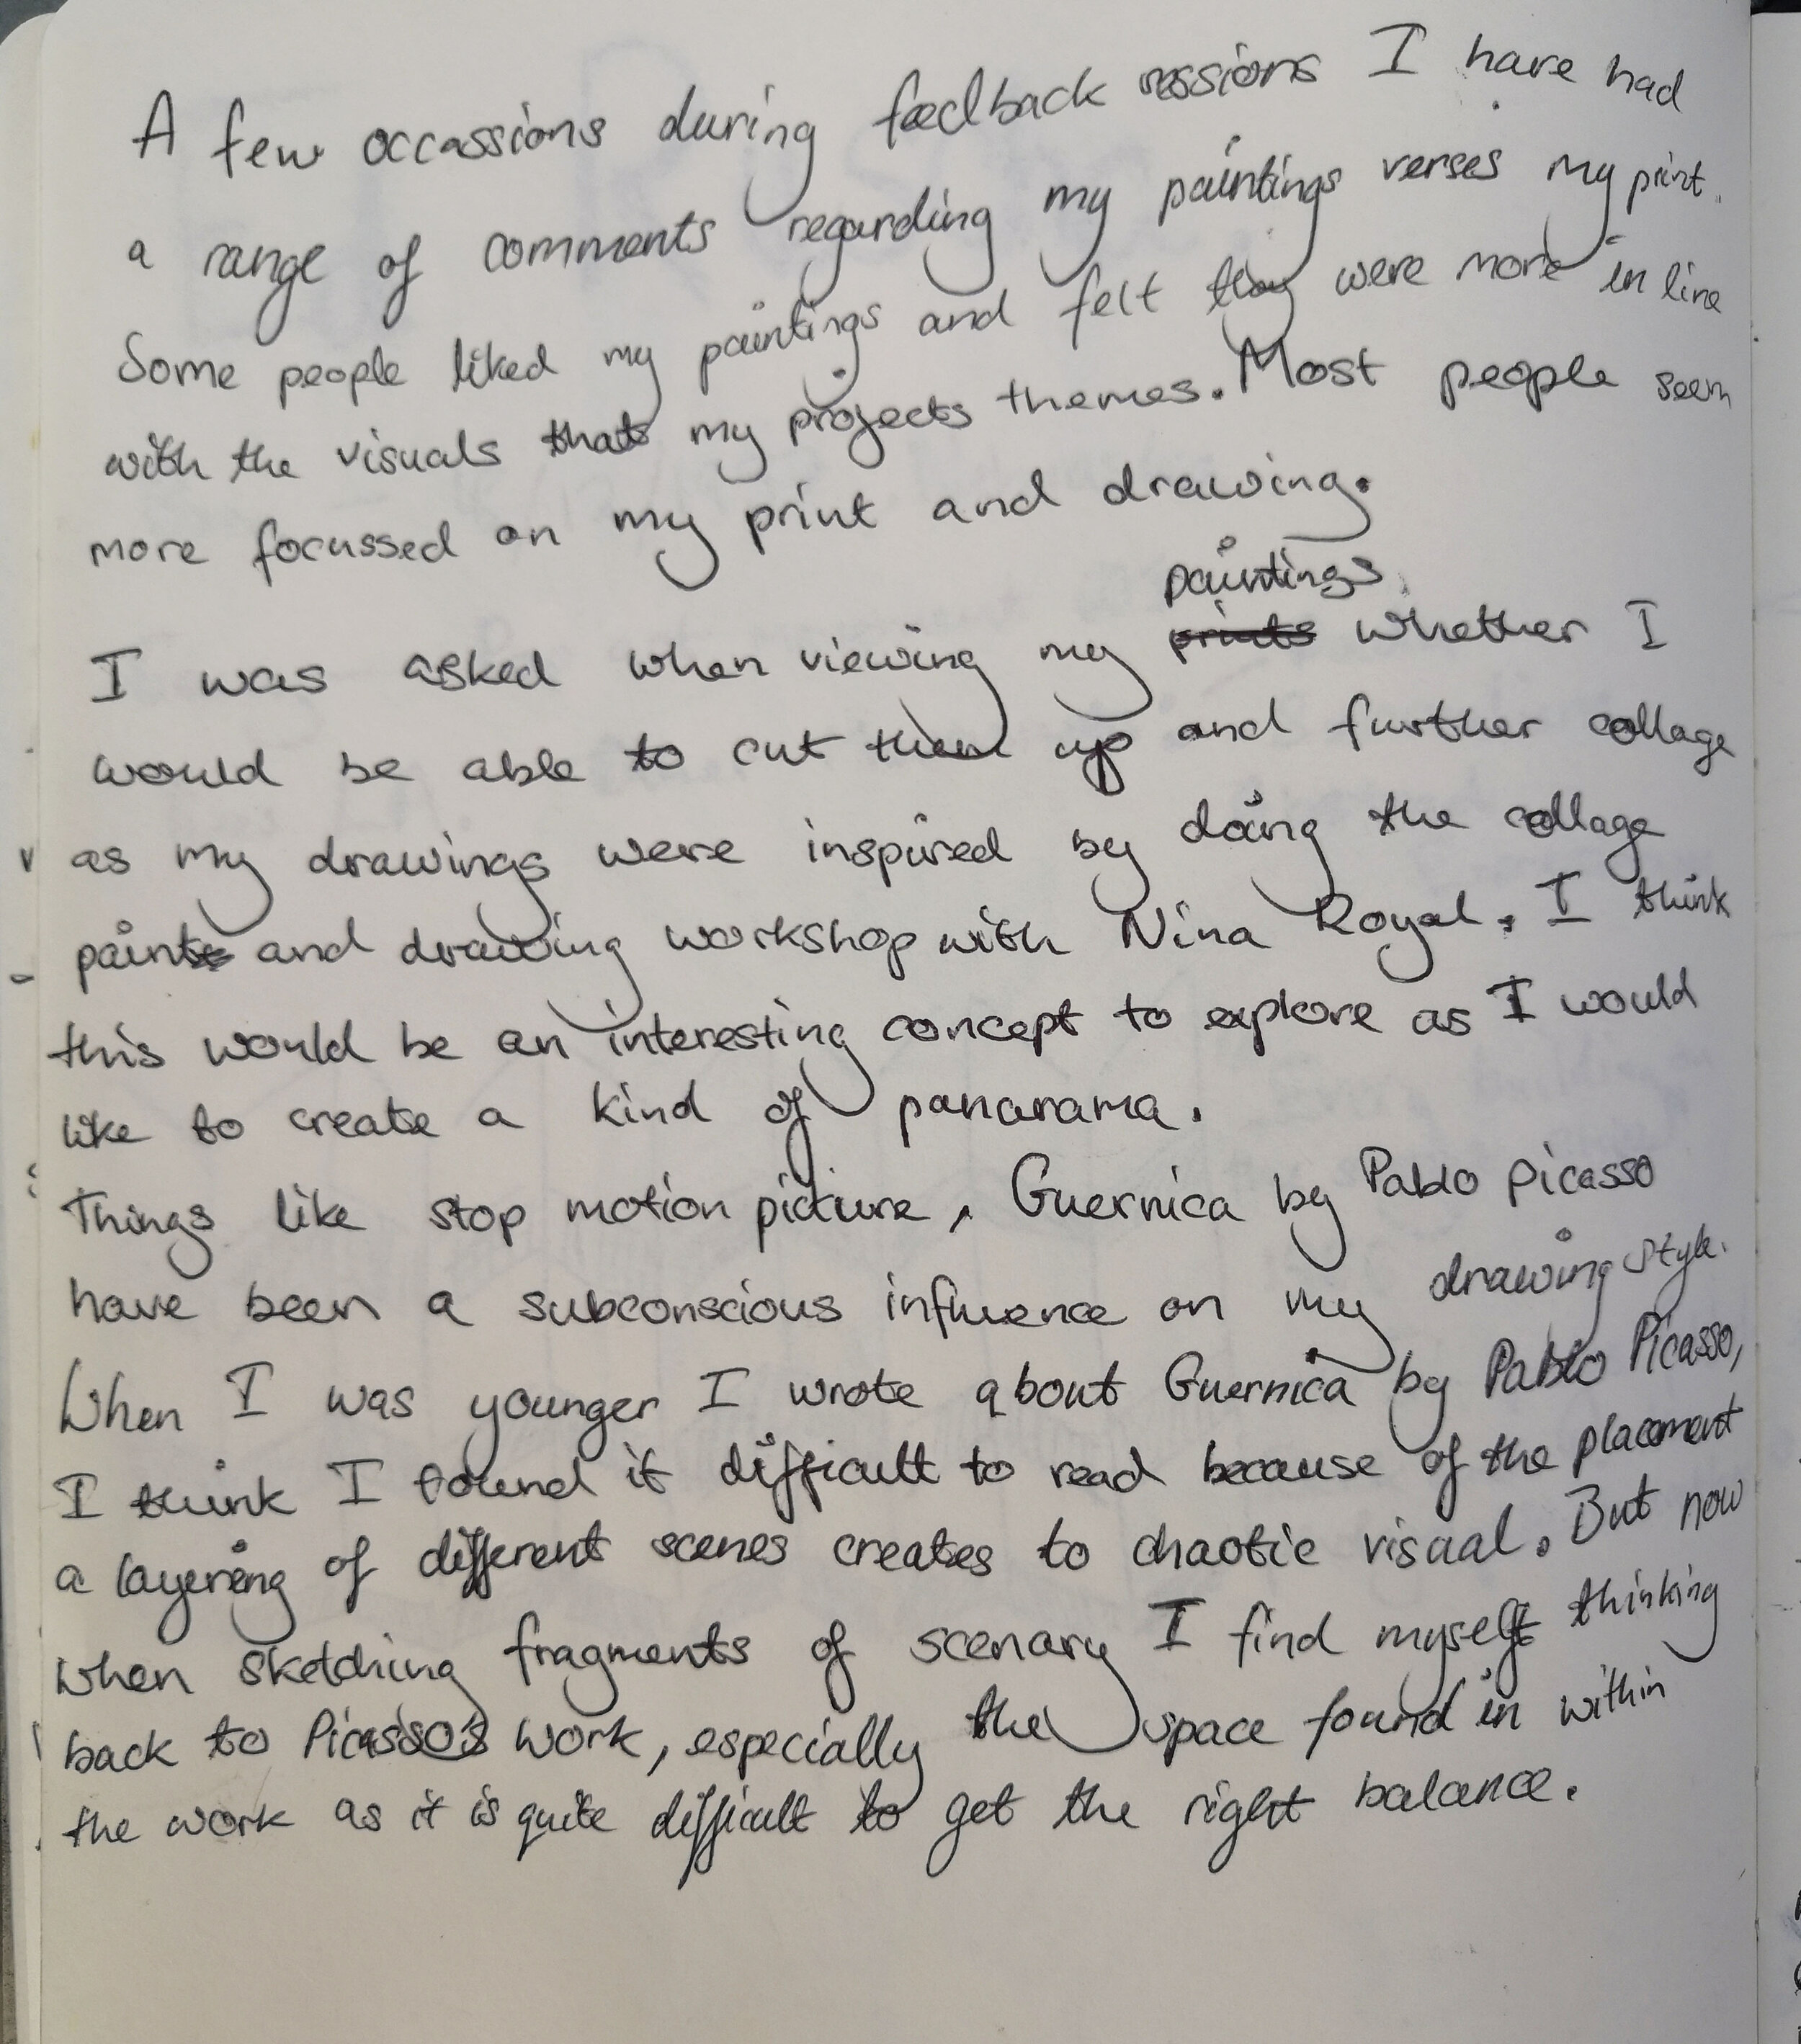 A few occassions during feedback sessions I have had
a range of comments regarding my paintings verses my print.
Some people liked my paintings and felt they were more in line
with the visuals that my projects themes. Most people seem
more focussed on my print and drawing.
paintings
I was asked when viewing my prints whether I
would be able to cut them up and further collage
as my drawings were inspired by doing the collage
paint and drawing workshop with Nina Royal. I think
this would be an interesting concept to explore as I would
like to create a kind of panarama.
Things like stop motion picture, Guernica by Pablo Picasso
have been a subconscious influence on my drawing style.
When I was younger I wrote about Guernica by Pablo Picasso,
I think I found it difficult to read because of the placement
a layering of different scenes creates to chaotic visual. But now
when sketching fragments of scenary I find myself thinking
back to Picasso's work, especially the space found in within
the work as it is quite difficult to get the right balance.